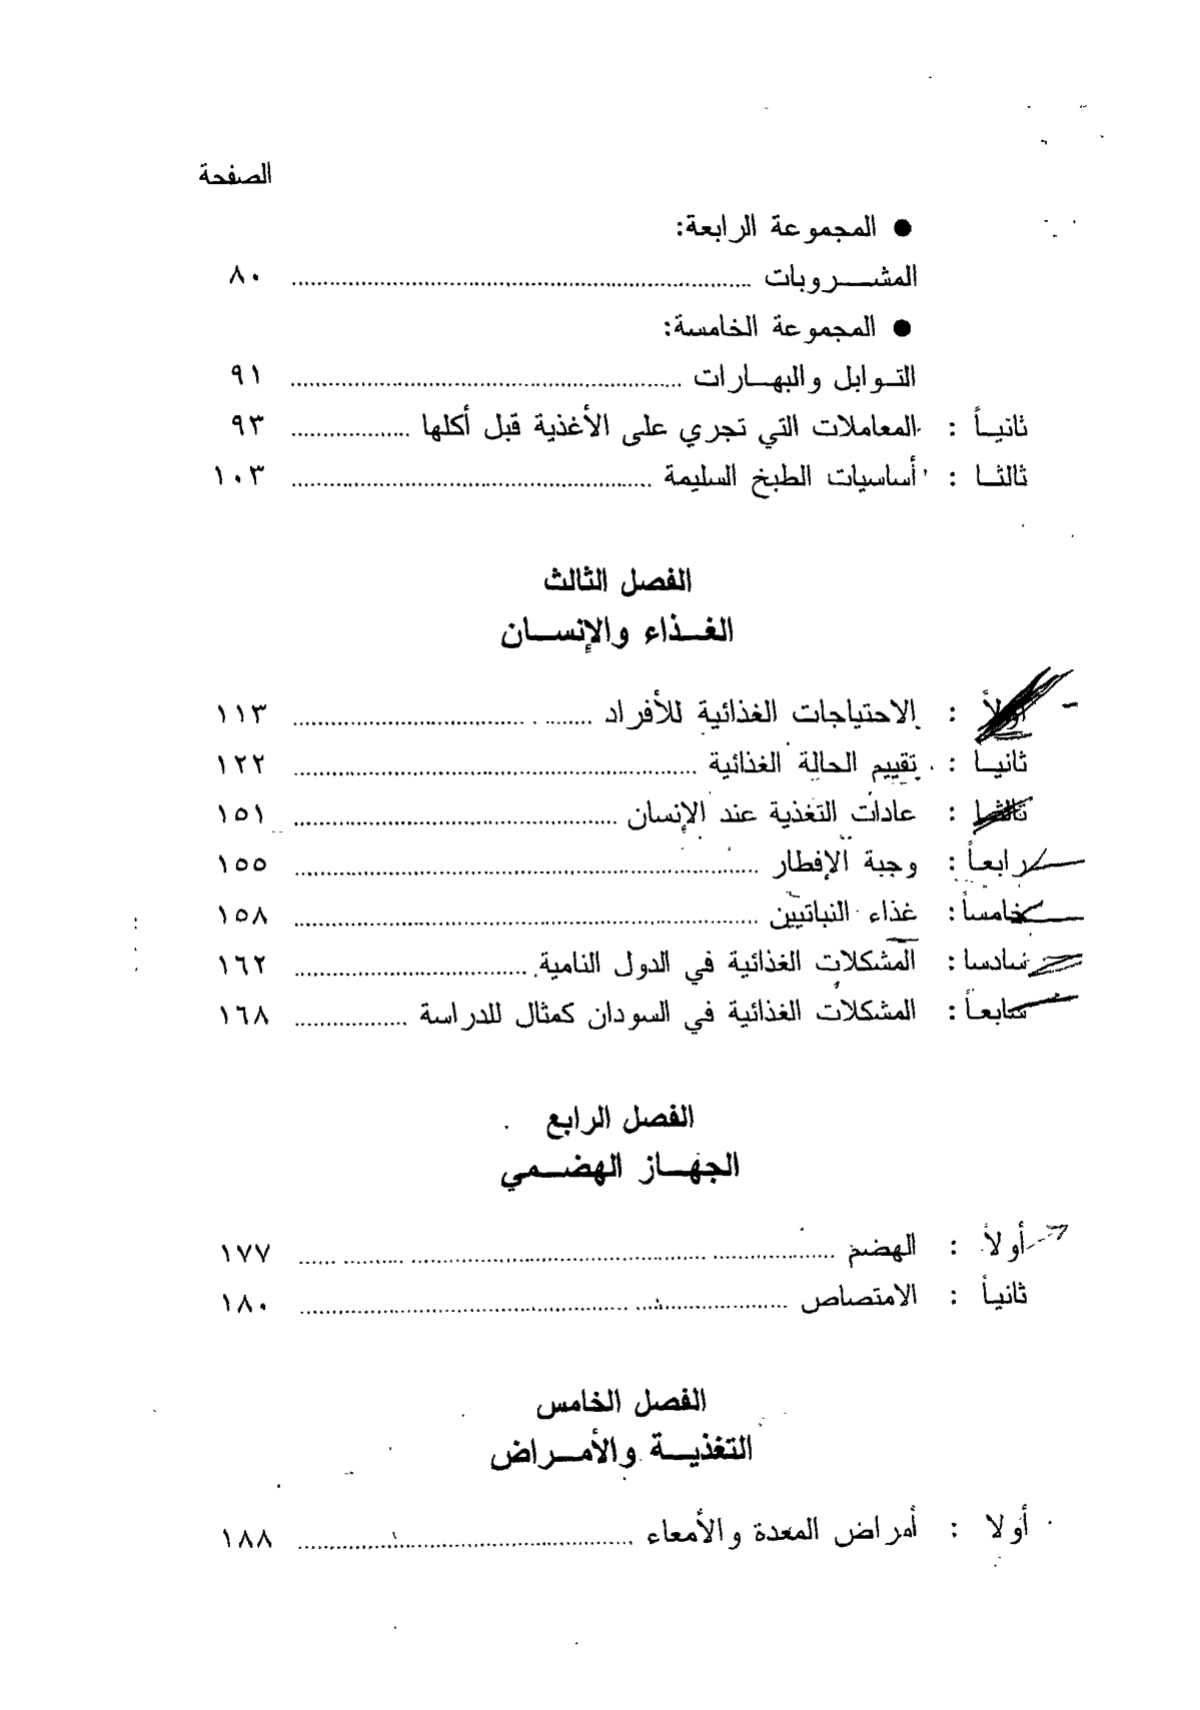 الصفحة
● المجموعة الرابعة:
المشـــروبات ........................................ ٨٠
● المجموعة الخامسة:
التـوابل والبهــارات ........................................ ٩١
ثانيـاً : المعاملات التي تجري على الأغذية قبل أكلها .................. ٩٣
ثالثـا : أساسيات الطبخ السليمة ........................................ ١٠٣
الفصل الثالث
الغــذاء والإنســان
أولاً : الاحتياجات الغذائية للأفراد ........................................ ١١٣
ثانيـا : تقييم الحالة الغذائية ........................................ ١٢٢
ثالثـا : عادات التغذية عند الإنسان ........................................ ١٥١
رابعـاً : وجبة الإفطار ........................................ ١٥٥
خامساً: غذاء النباتيين ........................................ ١٥٨
سادسا: المشكلات الغذائية في الدول النامية ........................................ ١٦٢
سابعـاً: المشكلات الغذائية في السودان كمثال للدراسة .................. ١٦٨
الفصل الرابع
الجهــاز الهضــمي
أولاً : الهضم ........................................ ١٧٧
ثانياً : الامتصاص ........................................ ١٨٠
الفصل الخامس
التغذيــة والأمــراض
أولا : أمراض المعدة والأمعاء ........................................ ١٨٨